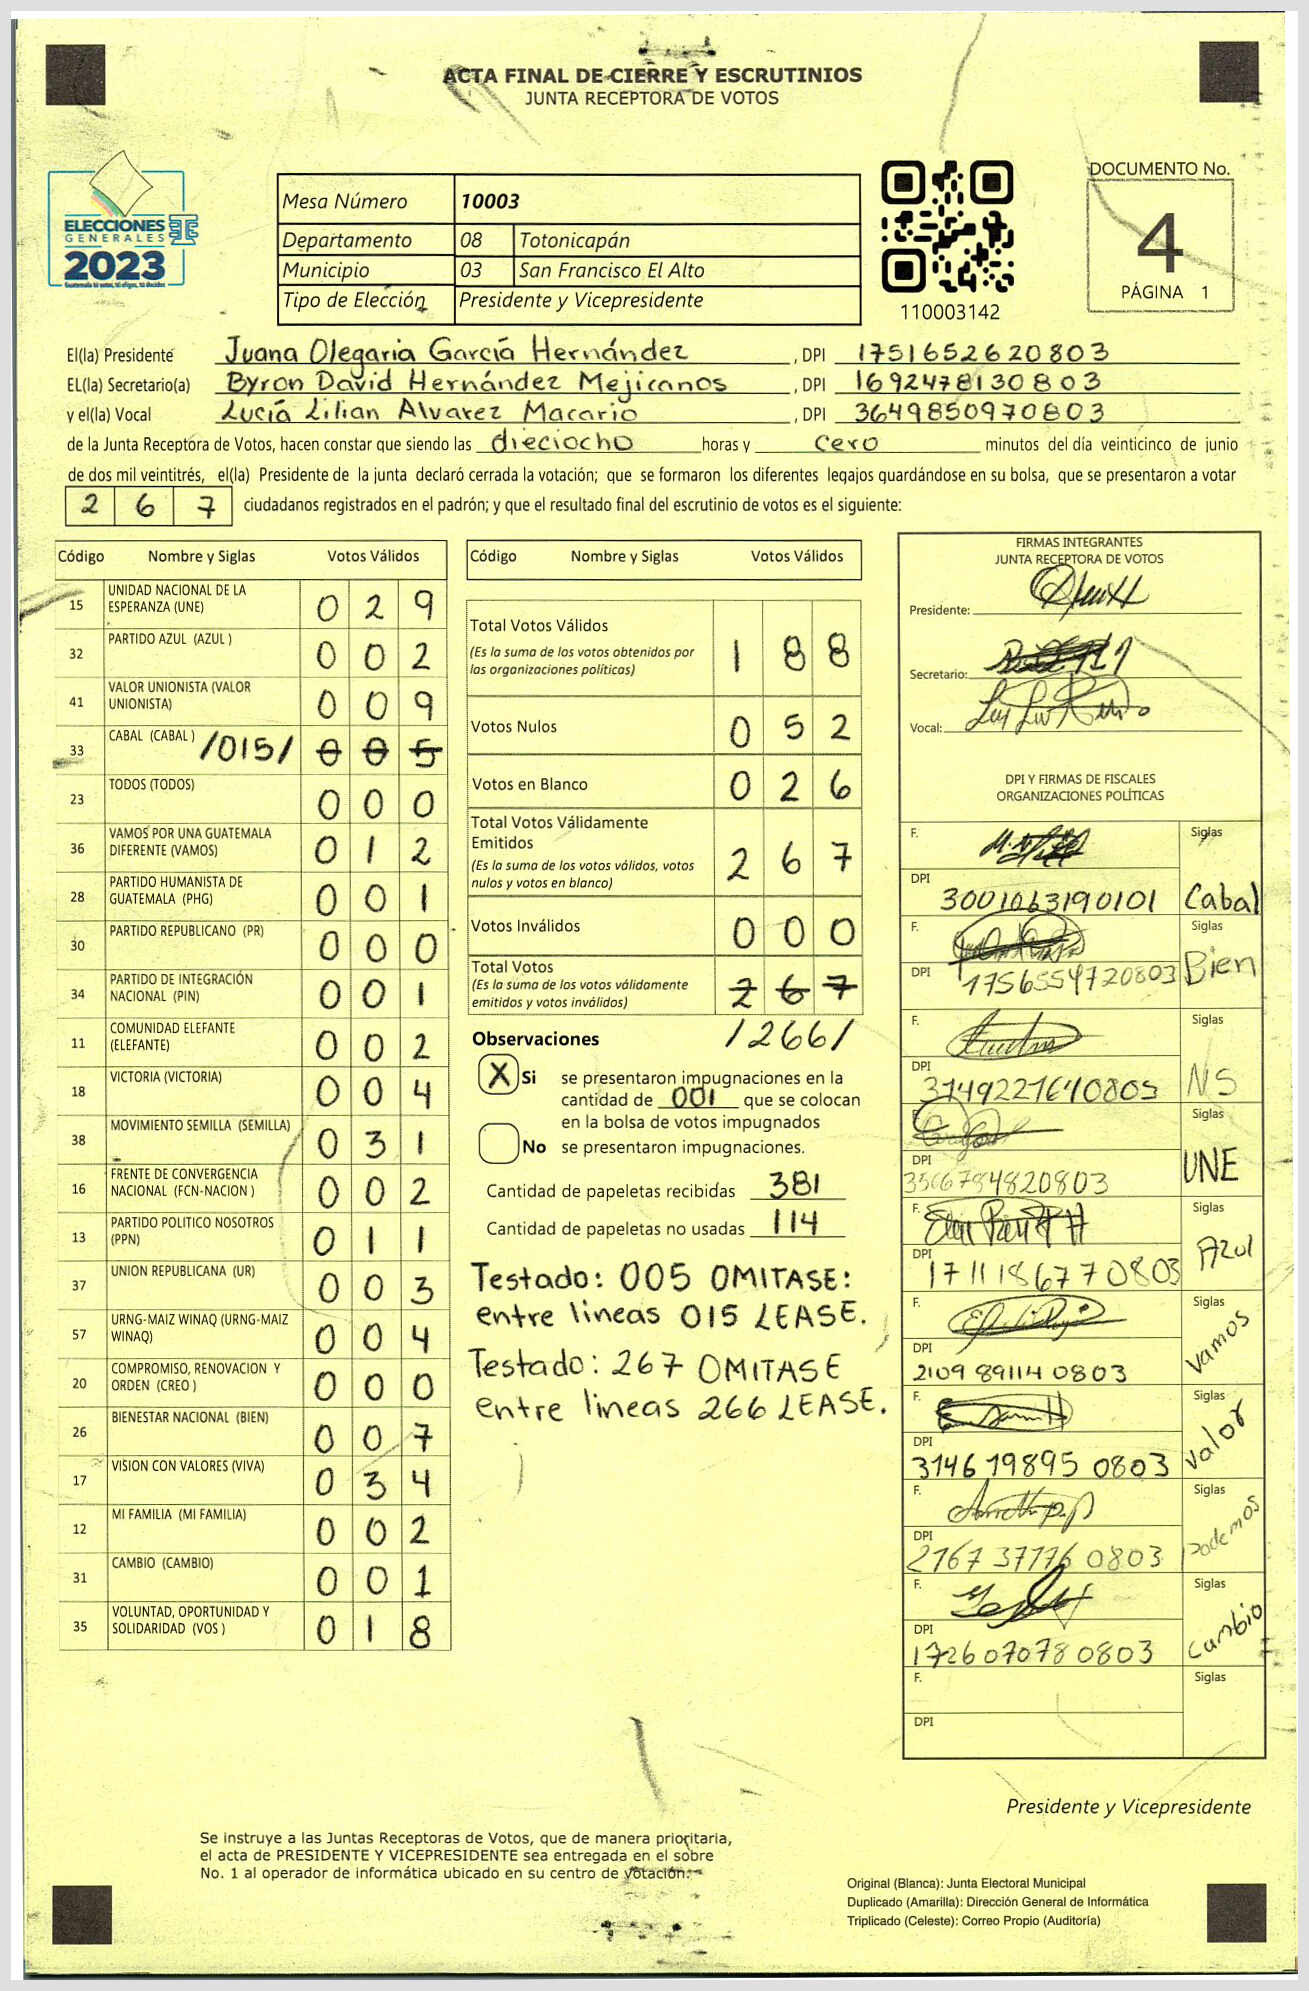 ACTA FINAL DE CIERRE Y ESCRUTINIOS
JUNTA RECEPTORA DE VOTOS
ELECCIONES
GENERALES
2023
Guatemala tú votas, tú eliges, tú decides
Mesa Número 10003
Departamento 08 Totonicapán
Municipio 03 San Francisco El Alto
Tipo de Elección Presidente y Vicepresidente
110003142
DOCUMENTO No.
4
PÁGINA 1
El(la) Presidente Juana Olegaria García Hernández , DPI 1751652620803
EL(la) Secretario(a) Byron David Hernández Mejicanos , DPI 1692478130803
y el(la) Vocal Lucía Lilian Alvarez Macario , DPI 3649850970803
de la Junta Receptora de Votos, hacen constar que siendo las dieciocho horas y cero minutos del día veinticinco de junio
de dos mil veintitrés, el(la) Presidente de la junta declaró cerrada la votación; que se formaron los diferentes legajos guardándose en su bolsa, que se presentaron a votar
2 6 7 ciudadanos registrados en el padrón; y que el resultado final del escrutinio de votos es el siguiente:
Código Nombre y Siglas Votos Válidos
15 UNIDAD NACIONAL DE LA ESPERANZA (UNE) 0 2 9
32 PARTIDO AZUL (AZUL ) 0 0 2
41 VALOR UNIONISTA (VALOR UNIONISTA) 0 0 9
33 CABAL (CABAL ) /015/ 0 0 5
23 TODOS (TODOS) 0 0 0
36 VAMOS POR UNA GUATEMALA DIFERENTE (VAMOS) 0 1 2
28 PARTIDO HUMANISTA DE GUATEMALA (PHG) 0 0 1
30 PARTIDO REPUBLICANO (PR) 0 0 0
34 PARTIDO DE INTEGRACIÓN NACIONAL (PIN) 0 0 1
11 COMUNIDAD ELEFANTE (ELEFANTE) 0 0 2
18 VICTORIA (VICTORIA) 0 0 4
38 MOVIMIENTO SEMILLA (SEMILLA) 0 3 1
16 FRENTE DE CONVERGENCIA NACIONAL (FCN-NACION ) 0 0 2
13 PARTIDO POLITICO NOSOTROS (PPN) 0 1 1
37 UNION REPUBLICANA (UR) 0 0 3
57 URNG-MAIZ WINAQ (URNG-MAIZ WINAQ) 0 0 4
20 COMPROMISO, RENOVACION Y ORDEN (CREO ) 0 0 0
26 BIENESTAR NACIONAL (BIEN) 0 0 7
17 VISION CON VALORES (VIVA) 0 3 4
12 MI FAMILIA (MI FAMILIA) 0 0 2
31 CAMBIO (CAMBIO) 0 0 1
35 VOLUNTAD, OPORTUNIDAD Y SOLIDARIDAD (VOS ) 0 1 8
Código Nombre y Siglas Votos Válidos
Total Votos Válidos 1 8 8
(Es la suma de los votos obtenidos por
las organizaciones políticas)
Votos Nulos 0 5 2
Votos en Blanco 0 2 6
Total Votos Válidamente
Emitidos 2 6 7
(Es la suma de los votos válidos, votos
nulos y votos en blanco)
Votos Inválidos 0 0 0
Total Votos
(Es la suma de los votos válidamente
emitidos y votos inválidos) 2 6 7
/266/
Observaciones
X Si se presentaron impugnaciones en la
cantidad de 001 que se colocan
en la bolsa de votos impugnados
No se presentaron impugnaciones.
Cantidad de papeletas recibidas 381
Cantidad de papeletas no usadas 114
Testado: 005 OMITASE:
entre lineas 015 LEASE.
Testado: 267 OMITASE
entre lineas 266 LEASE.
FIRMAS INTEGRANTES
JUNTA RECEPTORA DE VOTOS
Presidente:
Secretario:
Vocal:
DPI Y FIRMAS DE FISCALES
ORGANIZACIONES POLÍTICAS
F. Siglas
DPI 3001063190101 Cabal
F. Siglas
DPI 1756554720803 Bien
F. Siglas
DPI 3149221640803 NS
F. Siglas
DPI 3366784820803 UNE
F. Siglas
DPI 1711186770803 Azul
F. Siglas
DPI 2109891140803 Vamos
F. Siglas
DPI 3146198950803 Valor
F. Siglas
DPI 2767377760803 Podemos
F. Siglas
DPI 1726070780803 Cambio
F. Siglas
DPI
Presidente y Vicepresidente
Se instruye a las Juntas Receptoras de Votos, que de manera prioritaria,
el acta de PRESIDENTE Y VICEPRESIDENTE sea entregada en el sobre
No. 1 al operador de informática ubicado en su centro de votación.
Original (Blanca): Junta Electoral Municipal
Duplicado (Amarilla): Dirección General de Informática
Triplicado (Celeste): Correo Propio (Auditoría)